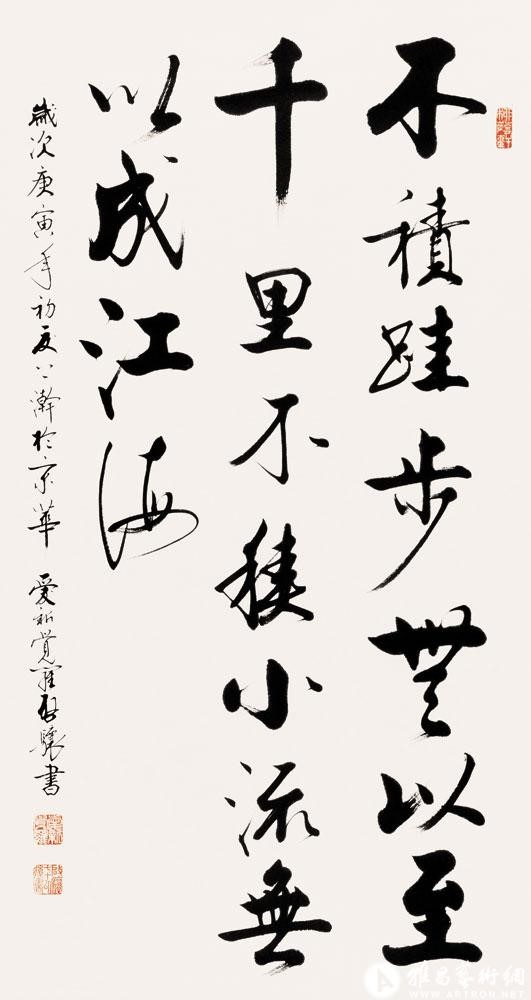 不積跬步無以至
千里不積小流無
以成江海
歲次庚寅年初夏上瀚於京華 愛新覺羅啟驤書
雅昌藝術網
WWW.ARTRON.NET